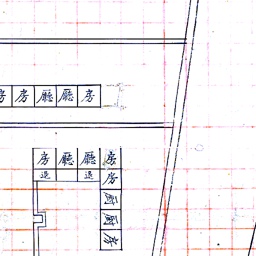 房房廳廳房
房廳廳房
退退房
厨
厨
房